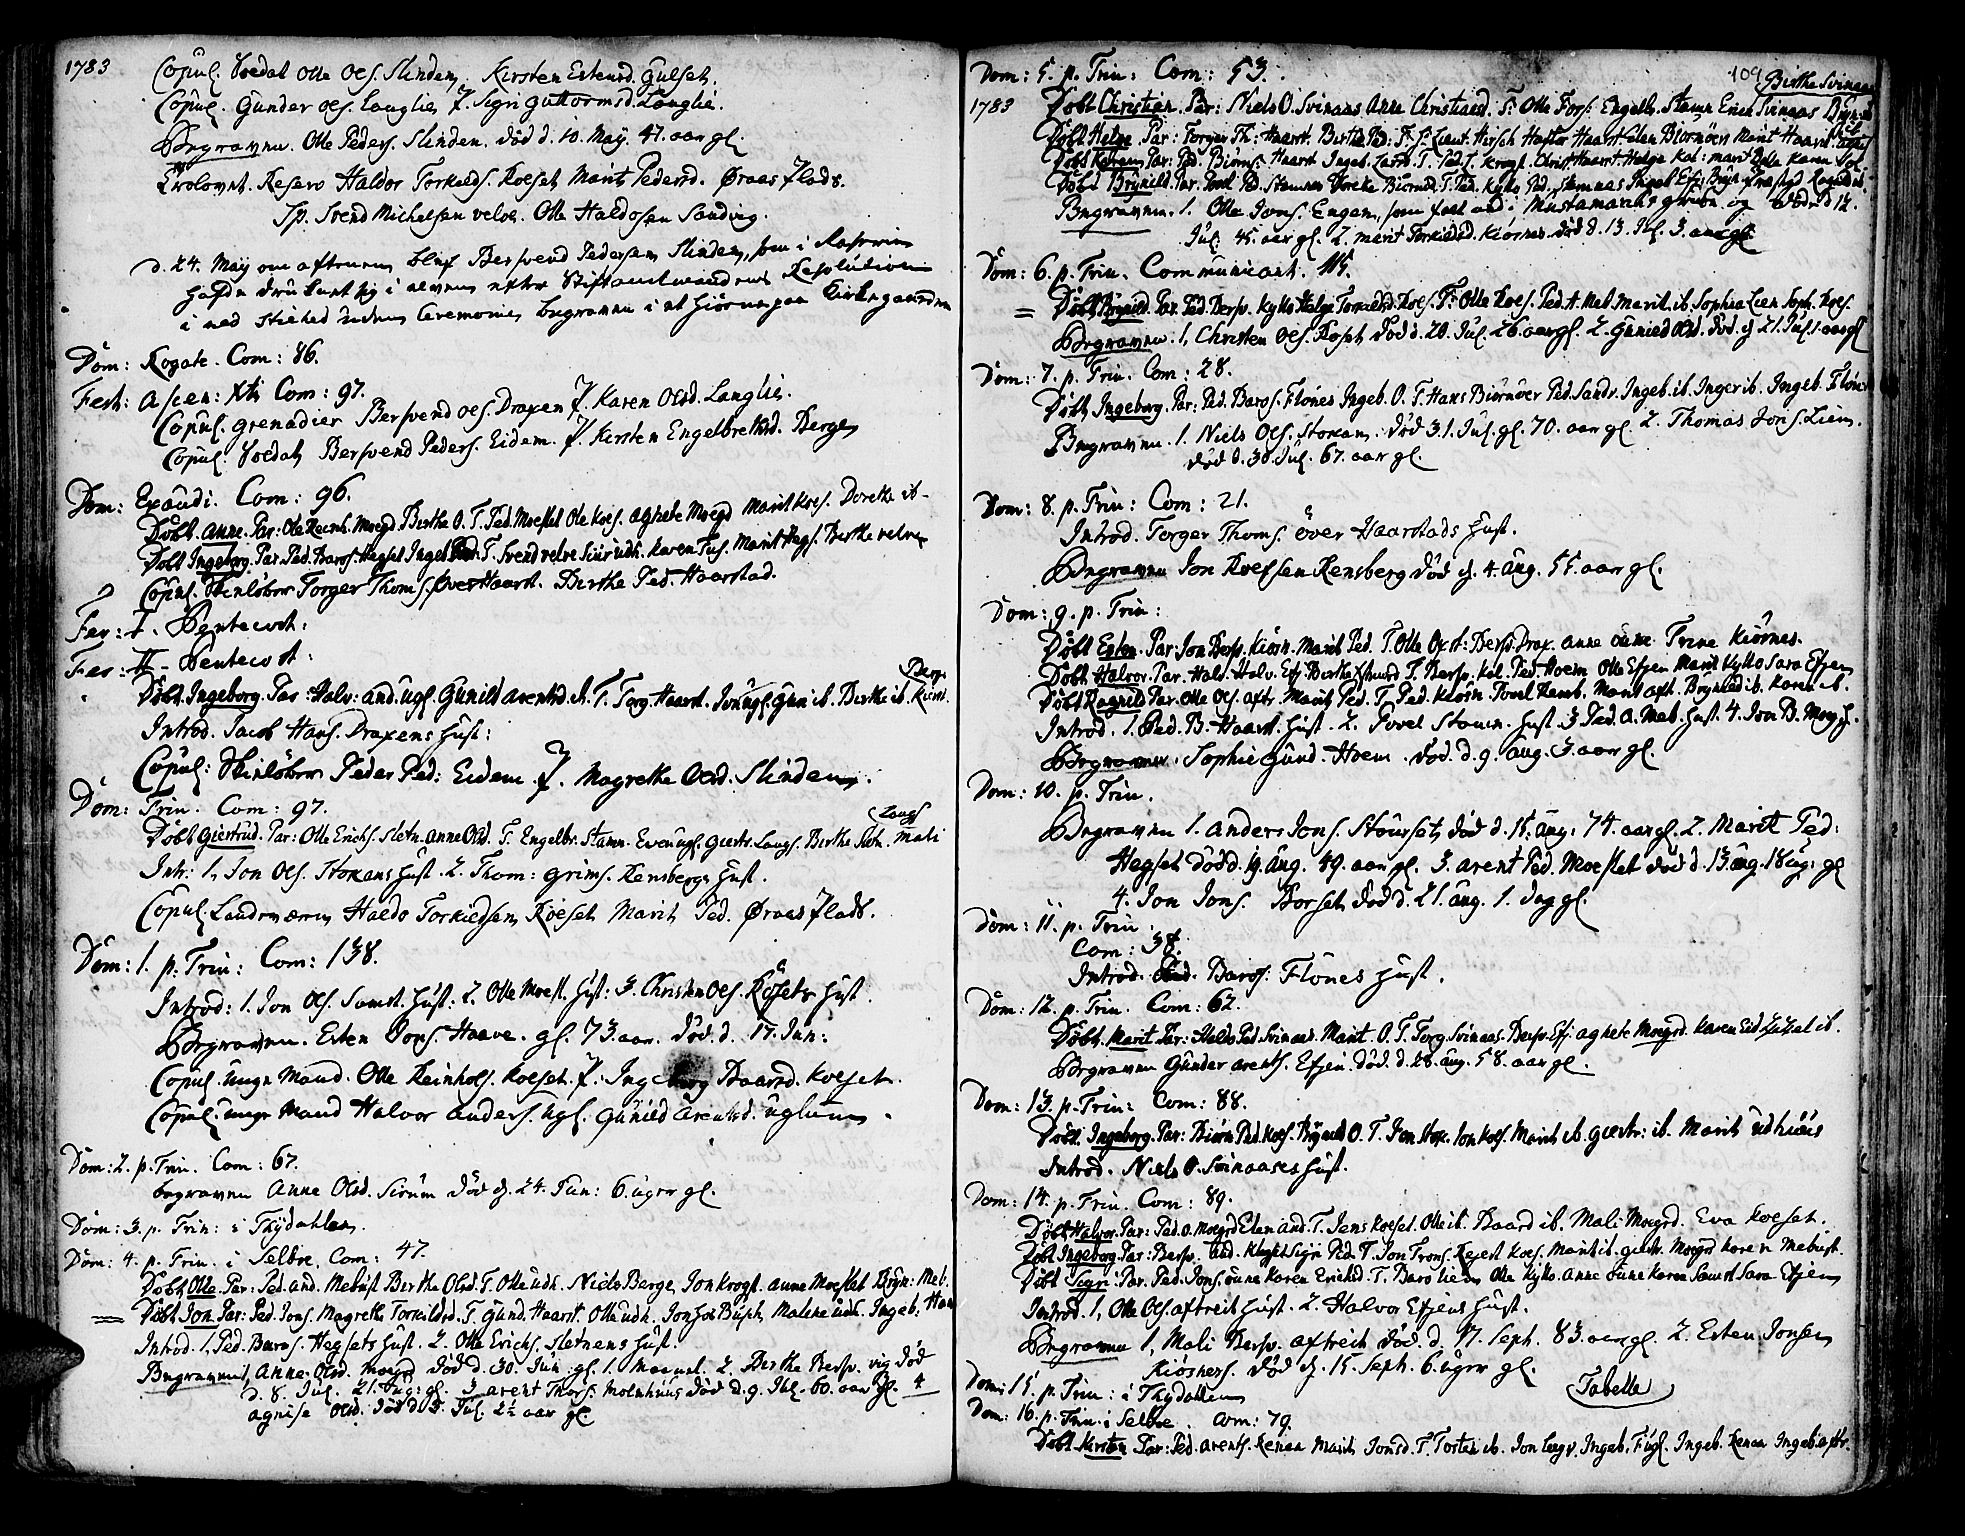 1783 Copul. Soldat Olle Ols. Slinden, Kirsten Estensd. Gulset.
Copul. Gunder Ols. Langlie, J. Sigri Guttormsd. Langlie.
Begraven. Olle Peders. Slinden. død d. 10. May. 47. aar gl.
Trolovet. Reserv Haldor Torkilds. Koeset Marit Pedersd. Øraas Flads.
Sp. Svend Michelsen velve. Olle Haldosen Sandvig.
d. 24. May om aftenen blef Bersvend Pedersen Slinden, som i
hafde druknet sig i elven efter Stiftamtmandens Resolution
i ned uden Ceremonie begraven i et hiørne paa Kirkegaarden
Dom: Rogate. Com: 86.
Fest: Ascen: Xti Com: 97.
Copul. Grenadier Bersvend Ols. Draxen J. Karen Olsd. Langlie.
Copul. Soldat Bersvend Peders. Eidem. J. Kirsten Engelbrethsd. Berge
Dom: Exaudi. Com: 96.
Døbt Anne. Par: Ole Reinh. Moegd Birthe O. T. Ped. Moeslet Ole Koes. Agnete Moegd Marit Koes. Dorethe ib.
Døbt Ingeborg. Par. Ped. Baros. Hegset Ingeb. Ped. T. Svend velve Siur udh. Karen Fus. Marit Hegs. Birthe velve
Copul. Skiløber Torger Thoms. Øver Haarst. Birthe Ped. Haarstad.
Fer: I. Pentecost:
Fer: II. Pentecost:
Berge
Døbt Ingeborg. Par: Halv: And. Ugl. Gunild Arentsd. ib. T. Torg. Haarst. Jon Ugl. Gun ib. Birthe ib. Kirst.
Introd. Jacob Hans. Draxens Hust:
Copul: Skiløber Peder Ped: Eidem. J. Magrethe Olsd. Slindem.
Dom: Trin. Com: 97.
Langs
Døbt Giertrud. Par: Olle Erichs. Sletn. Anne Olsd. T. Engelbr. Stamn. Even Ugl. Giertr. Langs. Birthe Sletn. Mali
Intr: 1, Jon Ols. Stokans Hust. 2. Thom: Grims. Rensbergs Hust.
Copul. Landværn Haldo Torkildsen Koeset Marit Ped. Øraas Flads.
Dom: 1. p. Trin: Com: 138.
Introd: 1. Jon Ols. Samst. Hust: 2. Olle Moesl. Hust: 3. Christen Ols. Røsets Hust.
Begraven. Esten Jons. Haave. gl. 73. aar. død. d. 17. Jun:
Copul. Unge Mand. Olle Reinhols. Koeset. J. Ingeborg Baarsd. Koeset.
Copul. Unge Mand Halvor Anders. Ugl. Gunild Arentsd. Uglum.
Dom: 2. p. Trin. Com: 67.
begraven Anne Olsd. Sirum død d. 24. Jun: 6. uger gl.
Dom: 3. p. Trin: i Thydahlen
Dom: 4. p. Trin. i Selboe. Com: 47.
Døbt Olle. Par: Ped. And. Mebust Berthe Olsd. T. Olle udh. Niels Berge, Jon Krogst. Anne Moeslet Bryn: Meb.
Døbt Jon. Par: Ped. Jons. Magrethe Torkildsd. T. Gund. Haarst. Olle udh. Jonsok Bush, Malene udh. Ingeb. Haa
Introd. 1. Ped. Baros. Hegsets Hust. 2. Olle Erichs. Sletnens Hust.
Begraven 1, Anne Olsd. Moegd død d. 30. Jun. gl. 1. Maaned. 2. Berthe Bersv. vig død
d. 8. Jul. 21. Aug: gl. 3. Arent Thors. Molnhuus død d. 9. Jul. 60. aar gl. 4
Agnise Olsd. død d. 3. Jul. 2½ aar gl.
109
Dom: 5. p. Trin: Com: 53. Birthe Svinaas
1783 Døbt Christian. Par: Niels O. Svinaas Anne Christiansd. T. Olle Fors. Engelbr. Stamn Erich Svinaas
Døbt Helge Par: Torger Th: Haarst. Birthe Ped. T. S. Lieut. Hersch Haftor Haarst. Elen Biørnøer Marit Haarst.
Døbt Karen Par: Ped. Biørns. Haarst Ingeb. Lars. T. Ped. J. Krogst. Christ. Haarst. Helge Kal: Marit Balle Karen Kol.
Døbt Brynild. Par. Povel Ped. Stamnes Dorthe Biørnsd. T. Ped. Kyllo Ped. Stamnas Ingeb. Efj. Bryn. Ragnild ib.
Begraven. 1. Olle Jons. Engen, som faldt ned i Mustamarks gruben og døde d. 12.
Jul. 45. aar gl. 2. Marit Torkildsd. Kiørnes død d. 13. Jul. 3. aar gl.
Dom: 6. p. Trin. Communicant. 115.
Døbt Brynild. Par. Ped. Bersv. Kyllo Helge Torkildsd. Koes. T: Olle Koes. Ped. A. Meb. Marit ib. Sophia Lien Soph. Koes.
Begraven. 1, Christen Ols. Røset død d. 20. Jul. 26. aar gl. 2. Gunild Olsd. død d. 21. Jul. 1. aar gl
Dom: 7. p. Trin. Com: 28.
Døbt Ingeborg. Par: Ped. Baros. Flønes Ingeb. O. T. Hans Biørnøer Ped. Sandv. Ingeb. ib. Inger ib. Ingeb. Fløne
Begraven. 1. Niels Ols. Stokan. død 31. Jul. gl. 70. aar gl 2. Thomas Jons. Lien.
død d. 30. Jul. 67. aar gl.
Dom: 8. p. Trin: Com: 21.
Introd. Torger Thoms. Over Haarstads Hust.
Begraven Jon Roelsen Rensberg død d. 4. Aug. 55. aar gl.
Dom: 9. p. Trin:
Døbt Esten. Par: Jon Bersv. Kiørn. Marit Ped. T. Olle Bersv. Drax. Anne Aune Trine Kiørnes.
Døbt Halvor. Par. Halv. Halv. Efj. Berthe T. Bersv. Kol. Ped. Hoem Olle Efjen Marit Kyllo Sara Efjen
Døbt Ragnild Par. Olle Ols. Aftr. Marit Ped. T. Ped. Kiørn Povel Marit Aft. Brynild ib. Karen ib.
Introd. 1. Ped. B. Haarst. Hust. 2. Povel Stamn. Hust. 3. Ped. A. Meb. Hust. 4. Jon B. Moe Hust.
Begraven. Sophie Gund. Hoem. død. d. 9. Aug. 3. aar gl.
Dom: 10. p. Trin.
Begraven 1. Anders Jons. Stourset død d. 15. Aug: 74. aar gl. 2. Marit Ped:
Hegset død d. 19. Aug. 49. aar gl. 3. Arent Ped. Moeslet død d. 13. Aug. 18 ug: gl
4. Jon Jons. Borset død d. 21. Aug. 1. dag gl.
Dom: 11. p. Trin.
Com: 38.
Introd. Ped. Baros. Flønes Hust.
Dom: 12. p. Trin. Com: 62.
Døbt. Marit Par: Haldo Ped. Svinaas. Marit. O. T. Torg. Svinaas. Bersv. Efj. Agnete Moegrd. Karen Eid. ib.
Begraven Gunder Arents. Efjen død d. 28. Aug. 58. aar gl.
Dom: 13. p. Trin: Com: 88.
Døbt. Ingeborg. Par: Biørn Ped. Koes. Brynild O. T. Jon Stok. Jon Koes. Marit ib. Giertr: ib. Marit Udhuus
Introd. Niels O. Svinaases Hust.
Dom: 14. p. Trin. Com: 89.
Døbt Halvor. Par: Ped. O. Moegrd Elen And. T. Jens Koeset. Olle ib. Baard ib. Mali Moegrd. Eva Koeset.
Døbt Ingeborg. Par: Bersv. And. Sigri Ped. T. Jon Trons. Koes. Marit ib. Giertr. Moegrd Karen Mebust.
Døbt Sigri. Par. Ped. Jons. Aune Karen Erichsd. T. Baro Lien Olle Kyllo. Anne Aune Karen Samst. Sara Efjen
Introd. 1, Olle Ols. Aftreit Hust. 2. Halvor Efjens Hust.
Begraven 1, Mali Bersv. Aftreit død. d. 17. Sept. 83. aar gl. 2. Esten Jonsen
Kiørnes. død d. 15. Sept. 6. uger gl.
Dom: 15. p. Trin: i Thydahlen Tabella
Dom: 16. p. Trin. i Selboe. Com: 79.
Døbt Kirsten Par: Ped. Arents. Renaa Marit Jonsd. T. Torsten ib. Jon Ingeb. Fugl. Ingeb. Renaa Ingeb. Aftr.